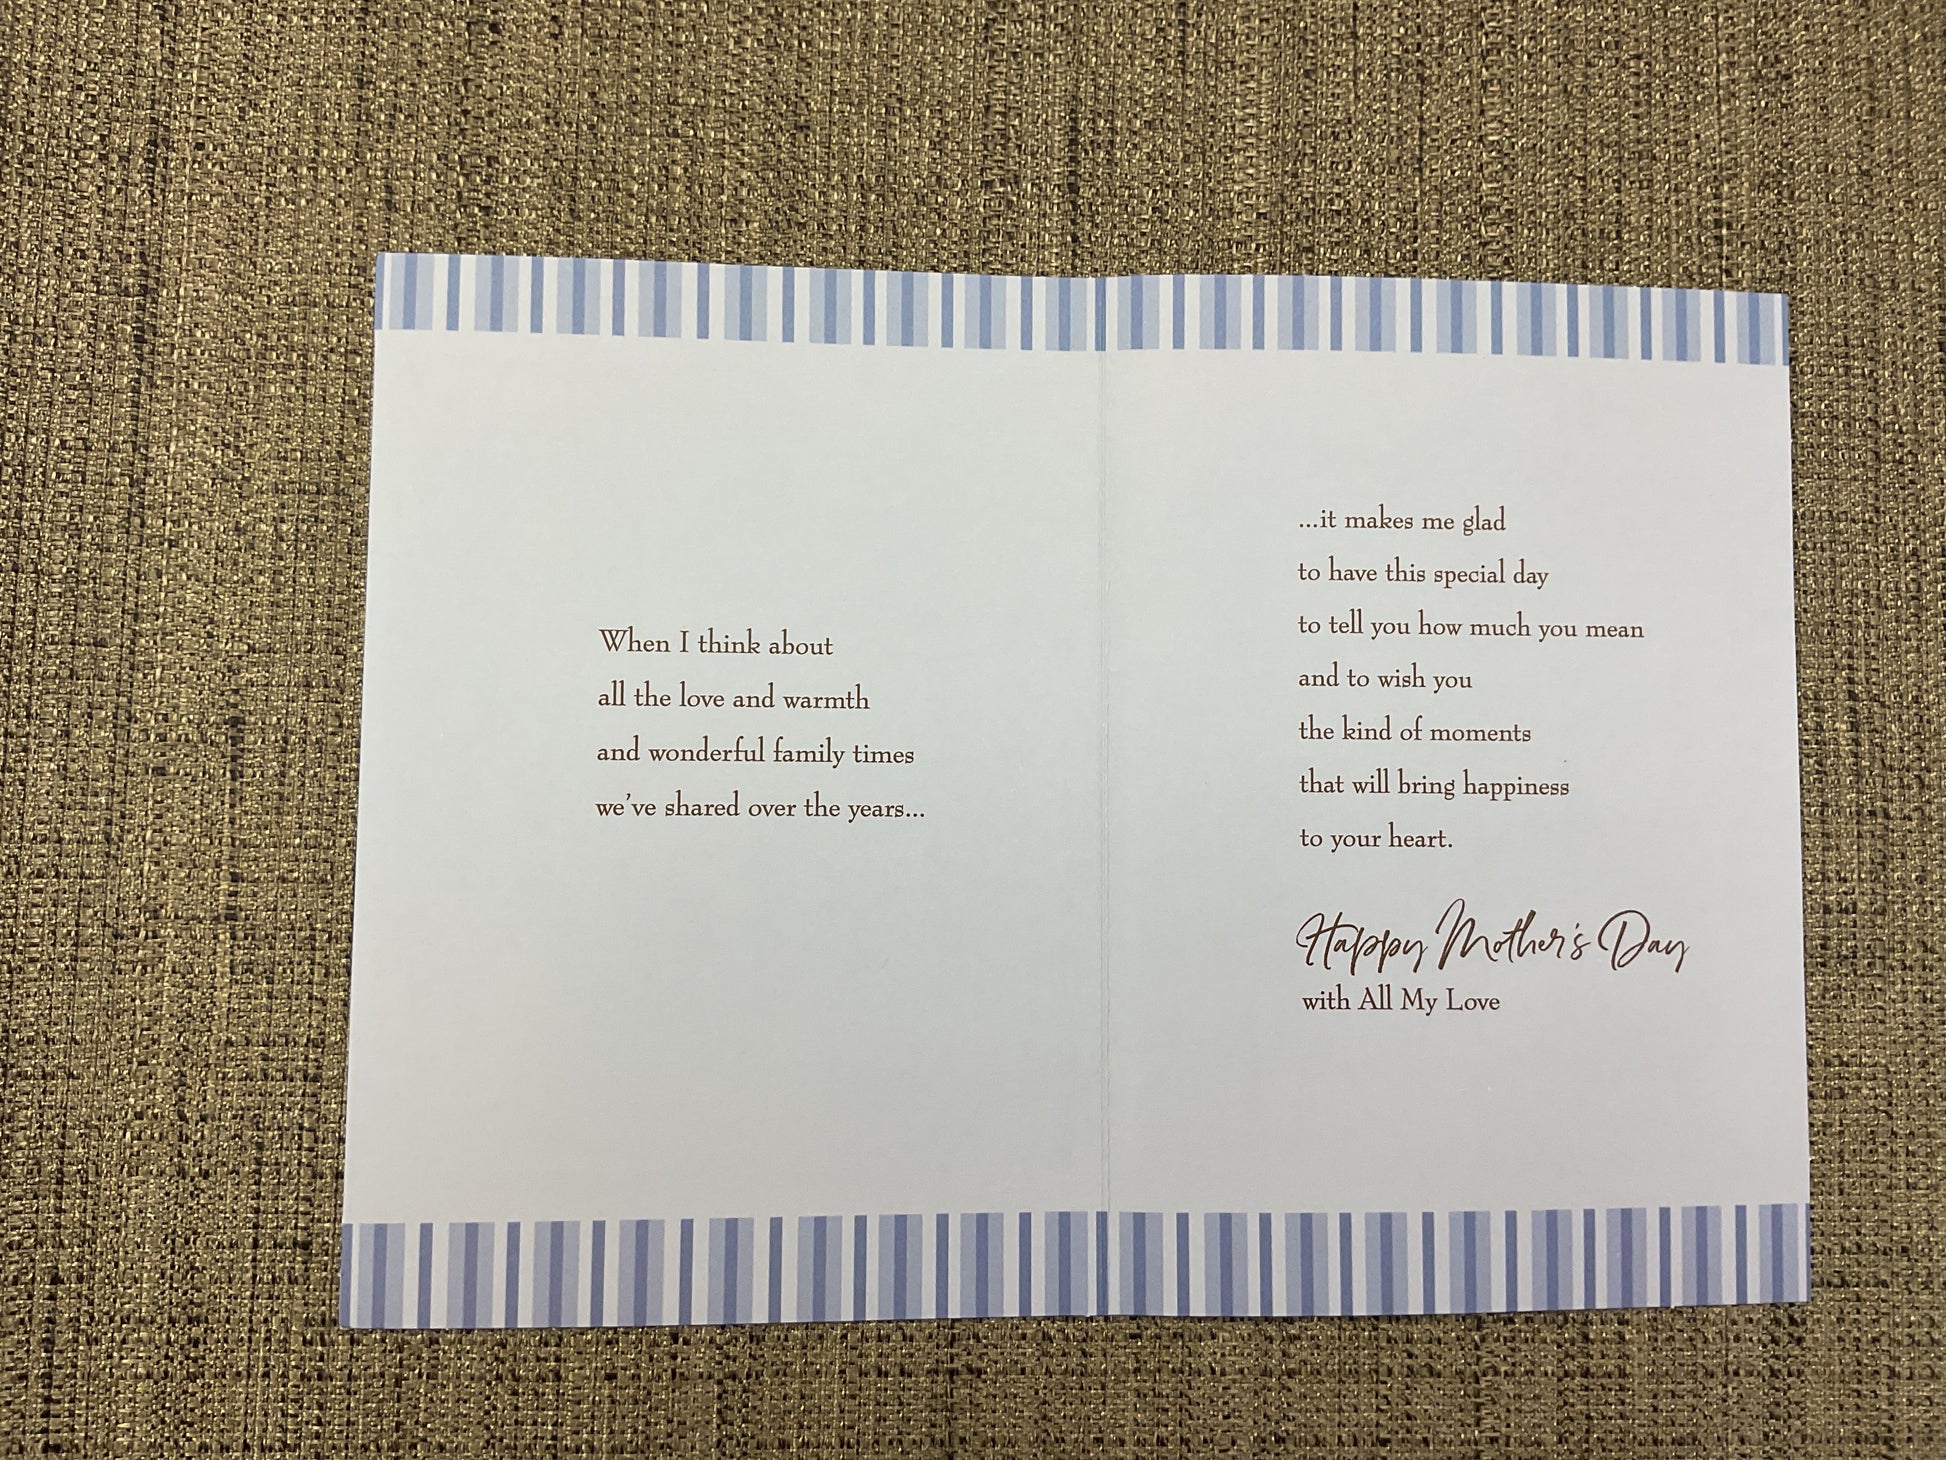 When I think about
all the love and warmth
and wonderful family times
we've shared over the years...
...it makes me glad
to have this special day
to tell you how much you mean
and to wish you
the kind of moments
that will bring happiness
to your heart.
Happy Mother's Day
with All My Love